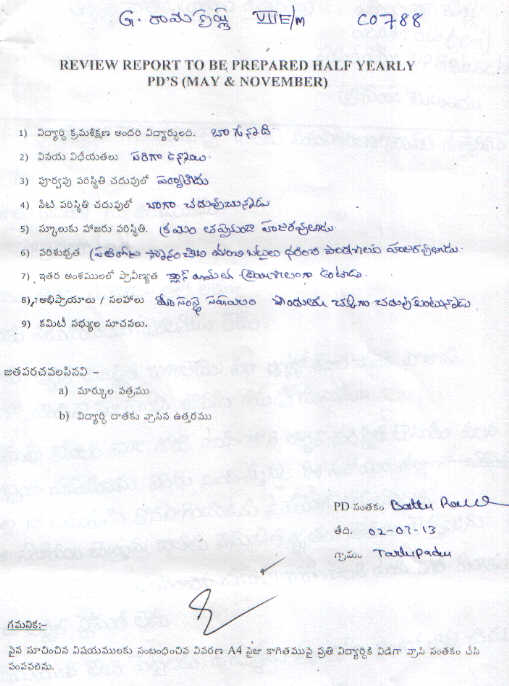 G. రామకృష్ణ VII E/m C0788
REVIEW REPORT TO BE PREPARED HALF YEARLY
PD'S (MAY & NOVEMBER)
1) విద్యార్థి క్రమశిక్షణ అందరి విద్యార్థులది. బాగున్నది
2) వినయ విధేయతలు సరిగా ఉన్నాయి.
3) పూర్వపు పరిస్థితి చదువులో పర్వాలేదు
4) నేటి పరిస్థితి చదువులో బాగా చదువుచున్నాడు
5) స్కూలుకు హాజరు పరిస్థితి. క్రమం తప్పకుండా హాజరవుతాడు.
6) పరిశుభ్రత ప్రతిరోజు స్నానం చేసి ధరించి హాజరవుతాడు.
7) ఇతర అంశములలో ప్రావీణ్యత ఉంటాడు.
8) అభిప్రాయాలు / సలహాలు మా సంస్థ సహాయం పొందుతూ చక్కగా చదువుకుంటున్నాడు.
9) కమిటీ సభ్యుల సూచనలు.
జతపరచవలసినవి –
a) మార్కుల పత్రము
b) విద్యార్థి దాతకు వ్రాసిన ఉత్తరము
PD సంతకం
తేది. 02-03-13
గ్రామం Tadupadu
గమనిక:-
పైన సూచించిన విషయములకు సంబంధించిన వివరణ A4 సైజు కాగితముపై ప్రతి విద్యార్థికి విడిగా వ్రాసి సంతకం చేసి
పంపవలెను.